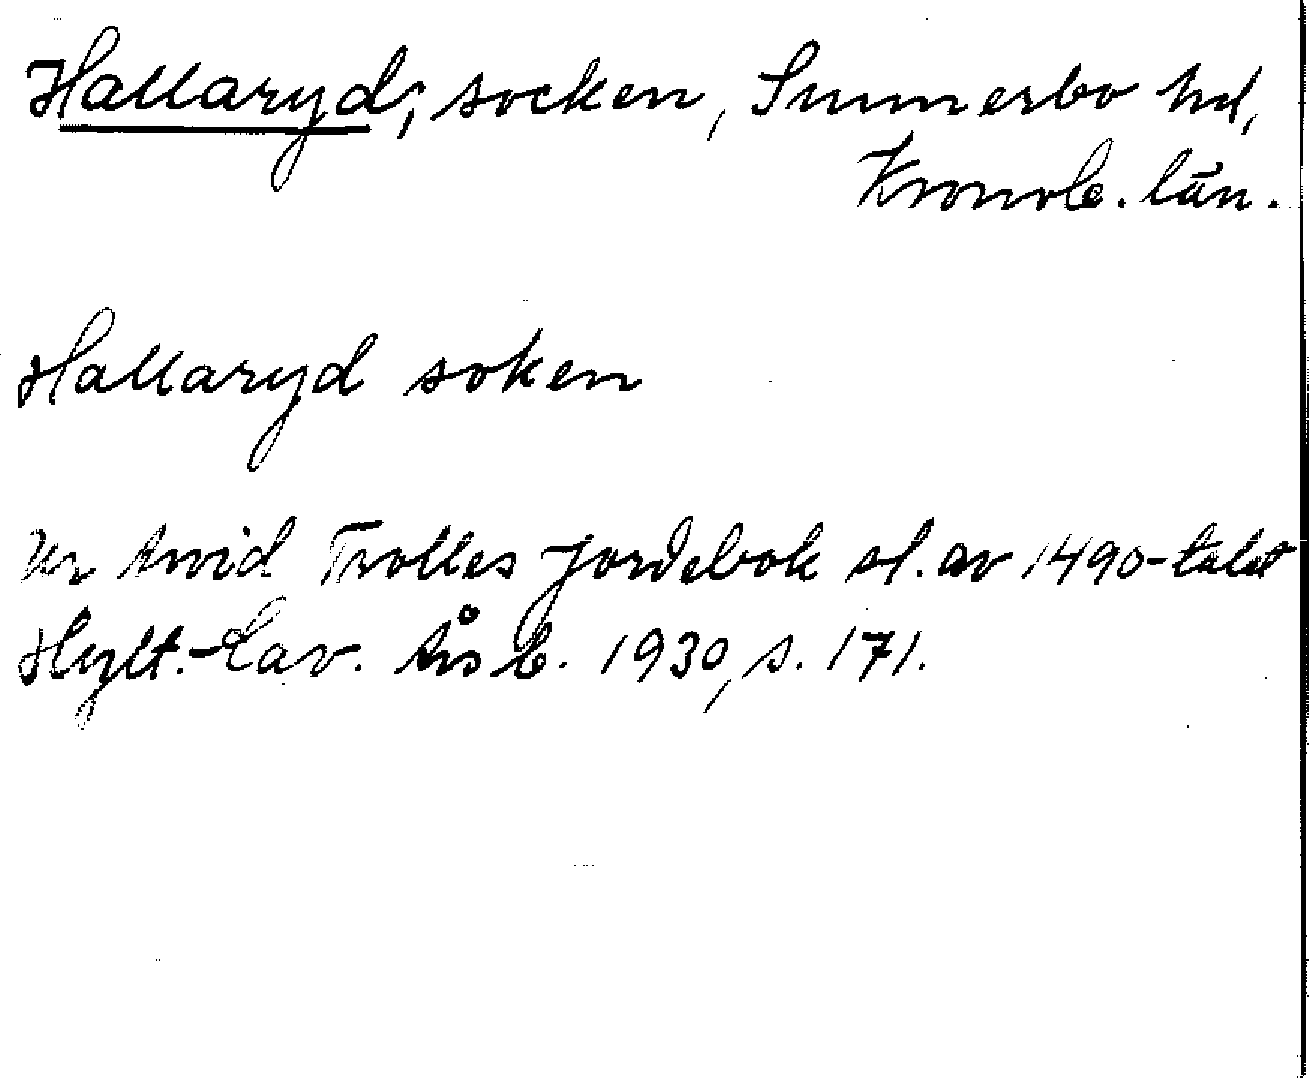 Hallaryd; socken, Sunnerbo hd,
Kronob. län.
Hallaryd soken
Ur Arvid Trolles Jordebok sl. av 1490-talet
Hylt.-Cav. Årsb. 1930, s. 171.